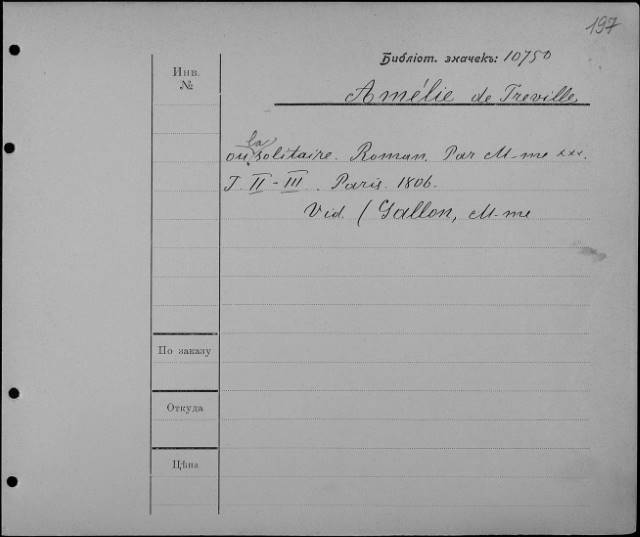 197
Библіот. значекъ: 10750
Инв.
№
Amélie de Treville,
la
ou solitaire. Roman. Par M-me xxx.
T. II-III. Paris. 1806.
Vid. (Gallon, M-me
По заказу
Откуда
Цѣна